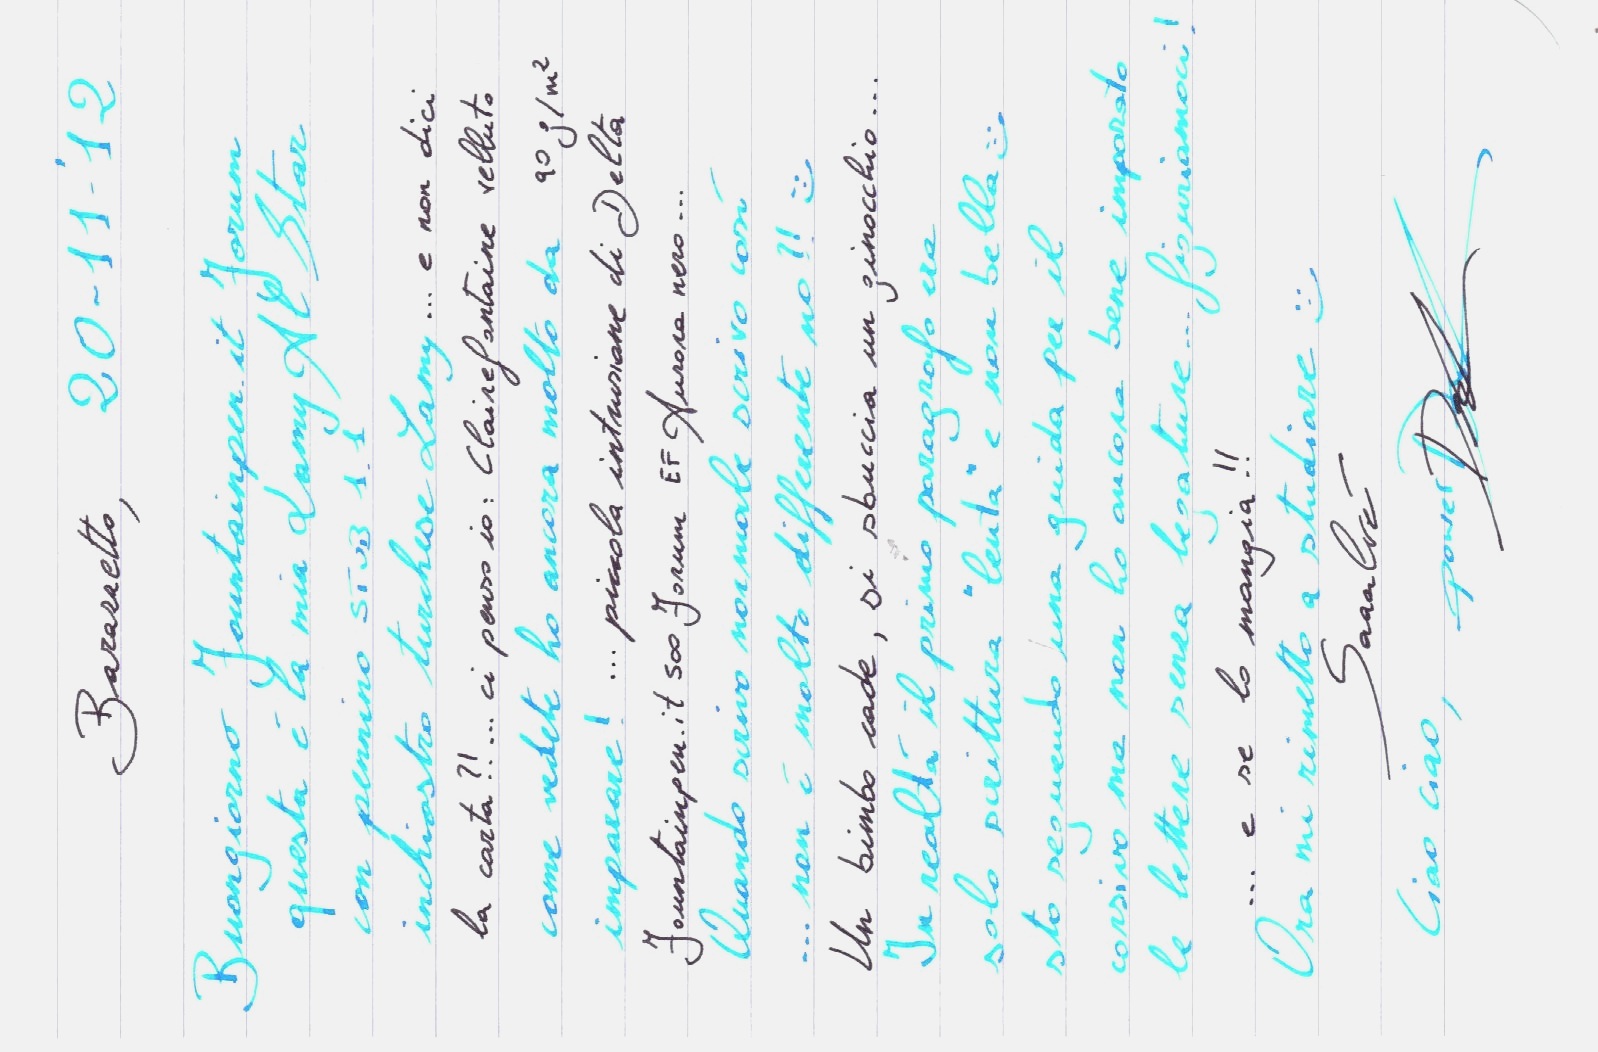 Barasetto, 20-11-12
Buongiorno Fountainpen.it Forum
questa è la mia Lamy Al Star
con pennino STUB 1.1
inchiostro turchese Lamy ... e non dici
la carta?!... ci penso io: Clairefontaine velluto
come vedete ho ancora molto da 90 g/m²
imparare! ... piccola intrusione di Delta
Fountainpen.it 500 Forum EF Aurora nero...
Quando scrivo normale scrivo così
... non è molto differente no?! :)
Un bimbo cade, si sbuccia un ginocchio...
In realtà il primo paragrafo era
solo scrittura "lenta" e non bella :)
sto seguendo una guida per il
corsivo ma non ho ancora bene imparato
le lettere senza legature... figuriamoci!
... e se lo mangia!!
Ora mi rimetto a studiare :)
Ciao ciao,